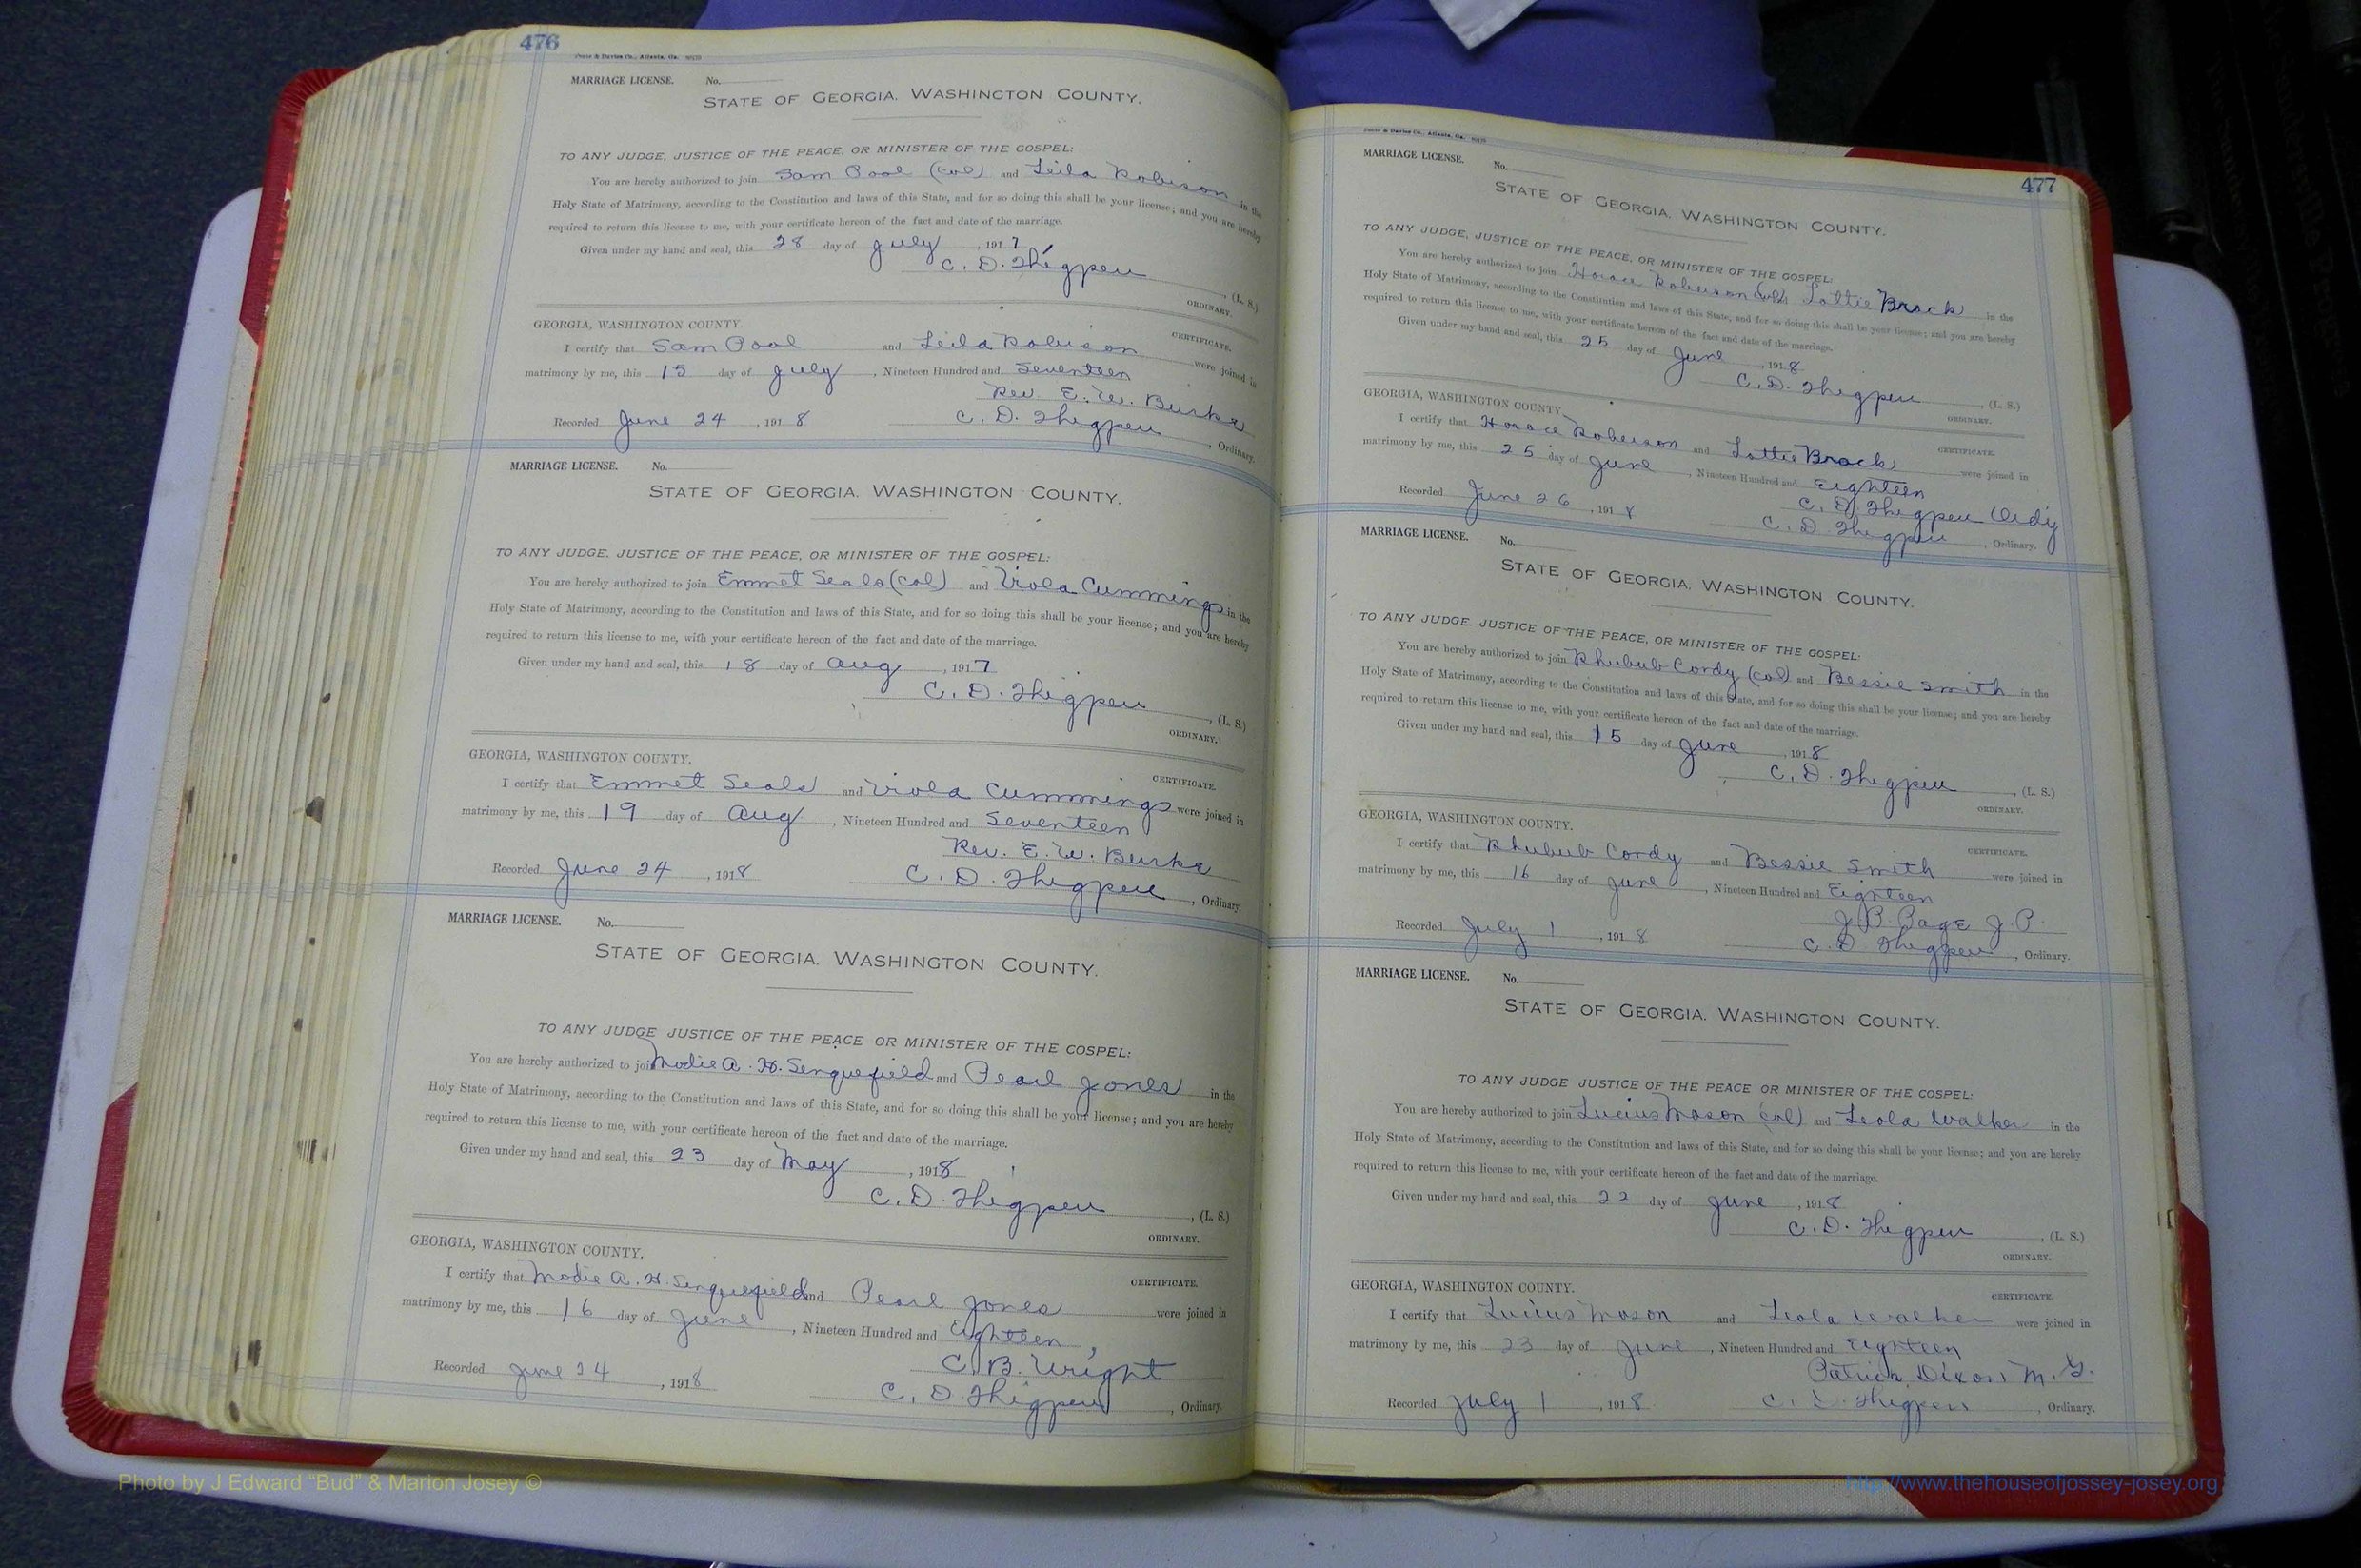 476
MARRIAGE LICENSE. No.
STATE OF GEORGIA, WASHINGTON COUNTY.
TO ANY JUDGE, JUSTICE OF THE PEACE, OR MINISTER OF THE GOSPEL:
You are hereby authorized to join Sam Pool (col) and Leila Robison in the
Holy State of Matrimony, according to the Constitution and laws of this State, and for so doing this shall be your license; and you are hereby
required to return this license to me, with your certificate hereon of the fact and date of the marriage.
Given under my hand and seal, this 28 day of July, 1917
C. D. Thigpen (L. S.)
ORDINARY.
GEORGIA, WASHINGTON COUNTY.
CERTIFICATE.
I certify that Sam Pool and Leila Robison were joined in
matrimony by me, this 15 day of July, Nineteen Hundred and Seventeen
Rev. E. W. Burke
Recorded June 24, 1918 C. D. Thigpen, Ordinary.
MARRIAGE LICENSE. No.
STATE OF GEORGIA, WASHINGTON COUNTY.
TO ANY JUDGE, JUSTICE OF THE PEACE, OR MINISTER OF THE GOSPEL:
You are hereby authorized to join Emmet Seals (col) and Viola Cummings in the
Holy State of Matrimony, according to the Constitution and laws of this State, and for so doing this shall be your license; and you are hereby
required to return this license to me, with your certificate hereon of the fact and date of the marriage.
Given under my hand and seal, this 18 day of Aug, 1917
C. D. Thigpen, (L. S.)
ORDINARY.
GEORGIA, WASHINGTON COUNTY.
CERTIFICATE.
I certify that Emmet Seals and Viola Cummings were joined in
matrimony by me, this 19 day of Aug, Nineteen Hundred and Seventeen
Rev. E. W. Burke
Recorded June 24, 1918 C. D. Thigpen, Ordinary.
MARRIAGE LICENSE. No.
STATE OF GEORGIA, WASHINGTON COUNTY.
TO ANY JUDGE JUSTICE OF THE PEACE OR MINISTER OF THE GOSPEL:
You are hereby authorized to join Modie A. H. Senquefield and Pearl Jones in the
Holy State of Matrimony, according to the Constitution and laws of this State, and for so doing this shall be your license; and you are hereby
required to return this license to me, with your certificate hereon of the fact and date of the marriage.
Given under my hand and seal, this 23 day of May, 1918
C. D. Thigpen, (L. S.)
ORDINARY.
GEORGIA, WASHINGTON COUNTY.
CERTIFICATE.
I certify that Modie A. H. Senquefield and Pearl Jones were joined in
matrimony by me, this 16 day of June, Nineteen Hundred and Eighteen,
C. B. Wright
Recorded June 24, 1918 C. D. Thigpen, Ordinary.
477
MARRIAGE LICENSE. No.
STATE OF GEORGIA, WASHINGTON COUNTY.
TO ANY JUDGE, JUSTICE OF THE PEACE, OR MINISTER OF THE GOSPEL:
You are hereby authorized to join Horace Roberson (col) Lottie Brack in the
Holy State of Matrimony, according to the Constitution and laws of this State, and for so doing this shall be your license; and you are hereby
required to return this license to me, with your certificate hereon of the fact and date of the marriage.
Given under my hand and seal, this 25 day of June, 1918
C. D. Thigpen, (L. S.)
ORDINARY.
GEORGIA, WASHINGTON COUNTY.
CERTIFICATE.
I certify that Horace Roberson and Lottie Brack were joined in
matrimony by me, this 25 day of June, Nineteen Hundred and Eighteen
C. D. Thigpen Ordy
Recorded June 26, 1918 C. D. Thigpen, Ordinary.
MARRIAGE LICENSE. No.
STATE OF GEORGIA, WASHINGTON COUNTY.
TO ANY JUDGE JUSTICE OF THE PEACE, OR MINISTER OF THE GOSPEL:
You are hereby authorized to join Rhubub Cordy (col) and Bessie Smith in the
Holy State of Matrimony, according to the Constitution and laws of this State, and for so doing this shall be your license; and you are hereby
required to return this license to me, with your certificate hereon of the fact and date of the marriage.
Given under my hand and seal, this 15 day of June, 1918
C. D. Thigpen, (L. S.)
ORDINARY.
GEORGIA, WASHINGTON COUNTY.
CERTIFICATE.
I certify that Rhubub Cordy and Bessie Smith were joined in
matrimony by me, this 16 day of June, Nineteen Hundred and Eighteen
J. B. Page J. P.
Recorded July 1, 1918 C. D. Thigpen, Ordinary.
MARRIAGE LICENSE. No.
STATE OF GEORGIA, WASHINGTON COUNTY.
TO ANY JUDGE JUSTICE OF THE PEACE OR MINISTER OF THE GOSPEL:
You are hereby authorized to join Lucius Mason (col) and Leola Walker in the
Holy State of Matrimony, according to the Constitution and laws of this State, and for so doing this shall be your license; and you are hereby
required to return this license to me, with your certificate hereon of the fact and date of the marriage.
Given under my hand and seal, this 22 day of June, 1918
C. D. Thigpen, (L. S.)
ORDINARY.
GEORGIA, WASHINGTON COUNTY.
CERTIFICATE.
I certify that Lucius Mason and Leola Walker were joined in
matrimony by me, this 23 day of June, Nineteen Hundred and Eighteen
Patrick Dixon M. G.
Recorded July 1, 1918 C. D. Thigpen, Ordinary.
Photo by J Edward “Bud” & Marion Josey ©
http://www.thehouseofjossey-josey.org